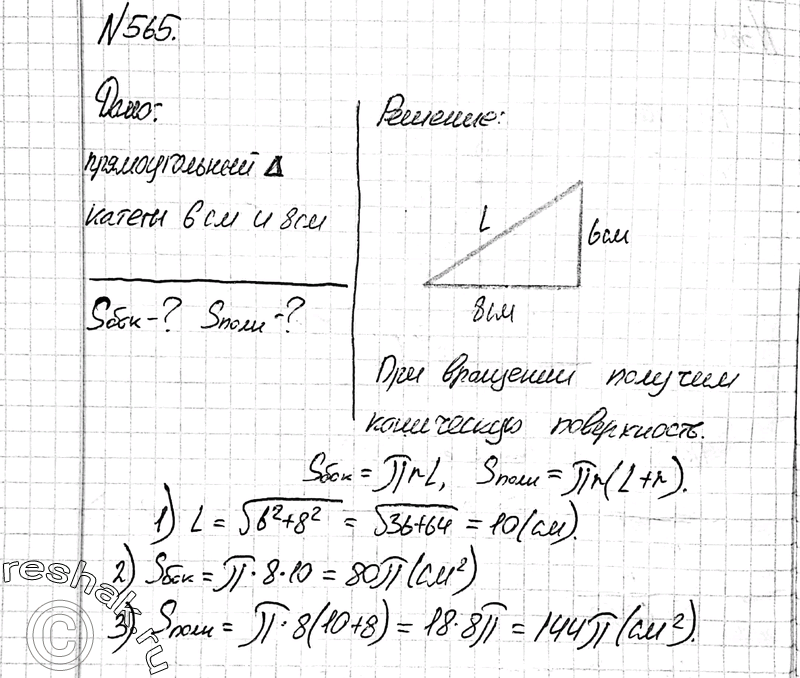 №565.
Дано:
прямоугольный Δ
катеты 6 см и 8 см
Sбок-? Sполн-?
Решение:
L
6 см
8 см
При вращении получим
коническую поверхность.
Sбок = πrL, Sполн = πr(L+r).
1) L = √6²+8² = √36+64 = 10(см).
2) Sбок = π·8·10 = 80π(см²)
3) Sполн = π·8(10+8) = 18·8π = 144π(см²).
reshak.ru
©